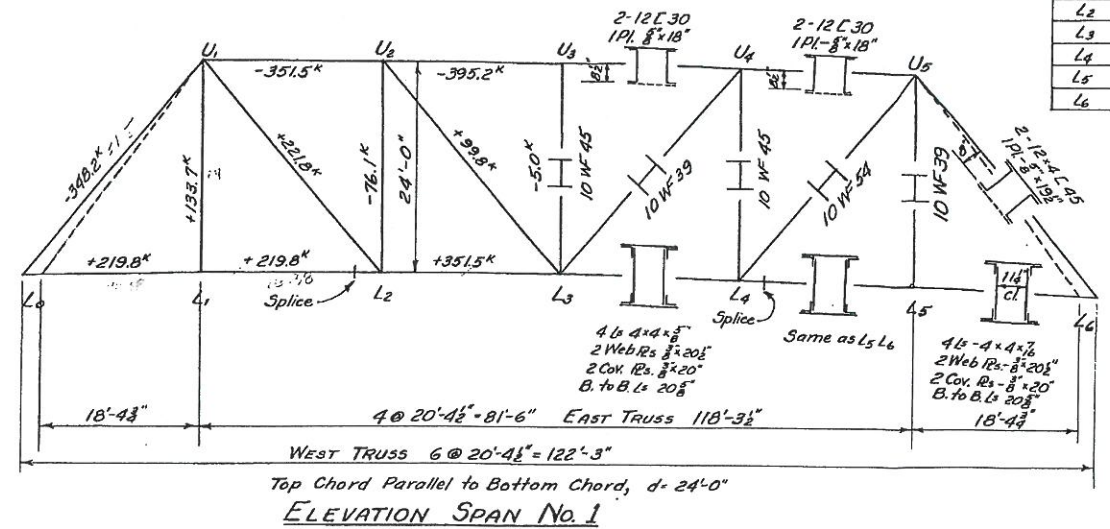 2-12 [ 30
1 Pl. 5/8" x 18"
2-12 [ 30
1 Pl.-5/8" x 18"
L2
L3
L4
L5
L6
U1
U2
U3
U4
U5
-351.5K
-395.2K
8 1/2"
8 1/2"
-348.2K
+133.7K
+221.8K
-76.1K
24'-0"
+99.8K
-5.0K
10 WF 45
10 WF 39
10 WF 45
10 WF 54
10 WF 39
2-12x4 [ 45
1 Pl-5/8" x 19 1/2"
+219.8K
+219.8K
+351.5K
11 1/4"
Cl.
L0
L1
Splice
L2
L3
L4
Splice
L5
L6
4 Ls 4x4x5/8"
2 Web Pls 3/8" x 20 1/2"
2 Cov. Pls. 3/8" x 20"
B. to B. Ls 20 5/8"
Same as L5 L6
4 Ls-4x4x7/16
2 Web Pls.-3/8" x 20 1/2"
2 Cov. Pls-3/8" x 20"
B. to B. Ls 20 5/8"
18'-4 3/4"
4 @ 20'-4 1/2" = 81'-6" EAST TRUSS 118'-3 1/2"
18'-4 3/4"
WEST TRUSS 6 @ 20'-4 1/2" = 122'-3"
Top Chord Parallel to Bottom Chord, d= 24'-0"
ELEVATION SPAN No. 1